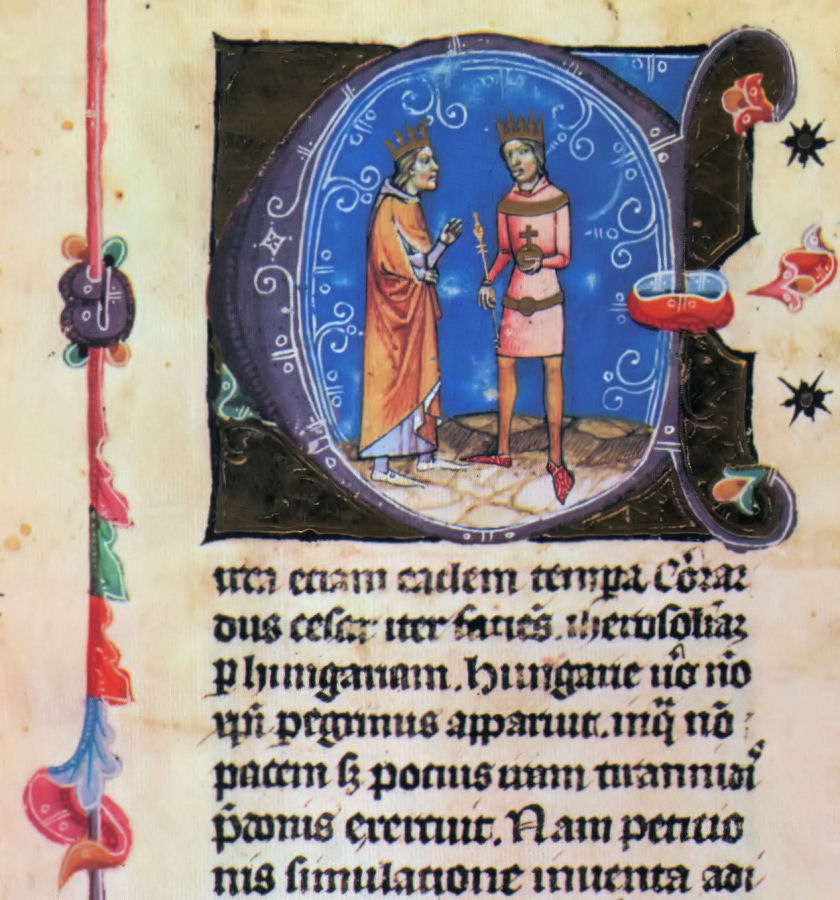 Circa etiam eadem tempa Cōrar
dus cesar iter faciēs. iherosolimā
p hungariam. hungarie uo nō
xpi pegrinus apparuit. in q̄ nō
pacem sȝ pocius iram tirannidis
p̄donis exercuit. Nam peticio
nis simulacione inuenta adi